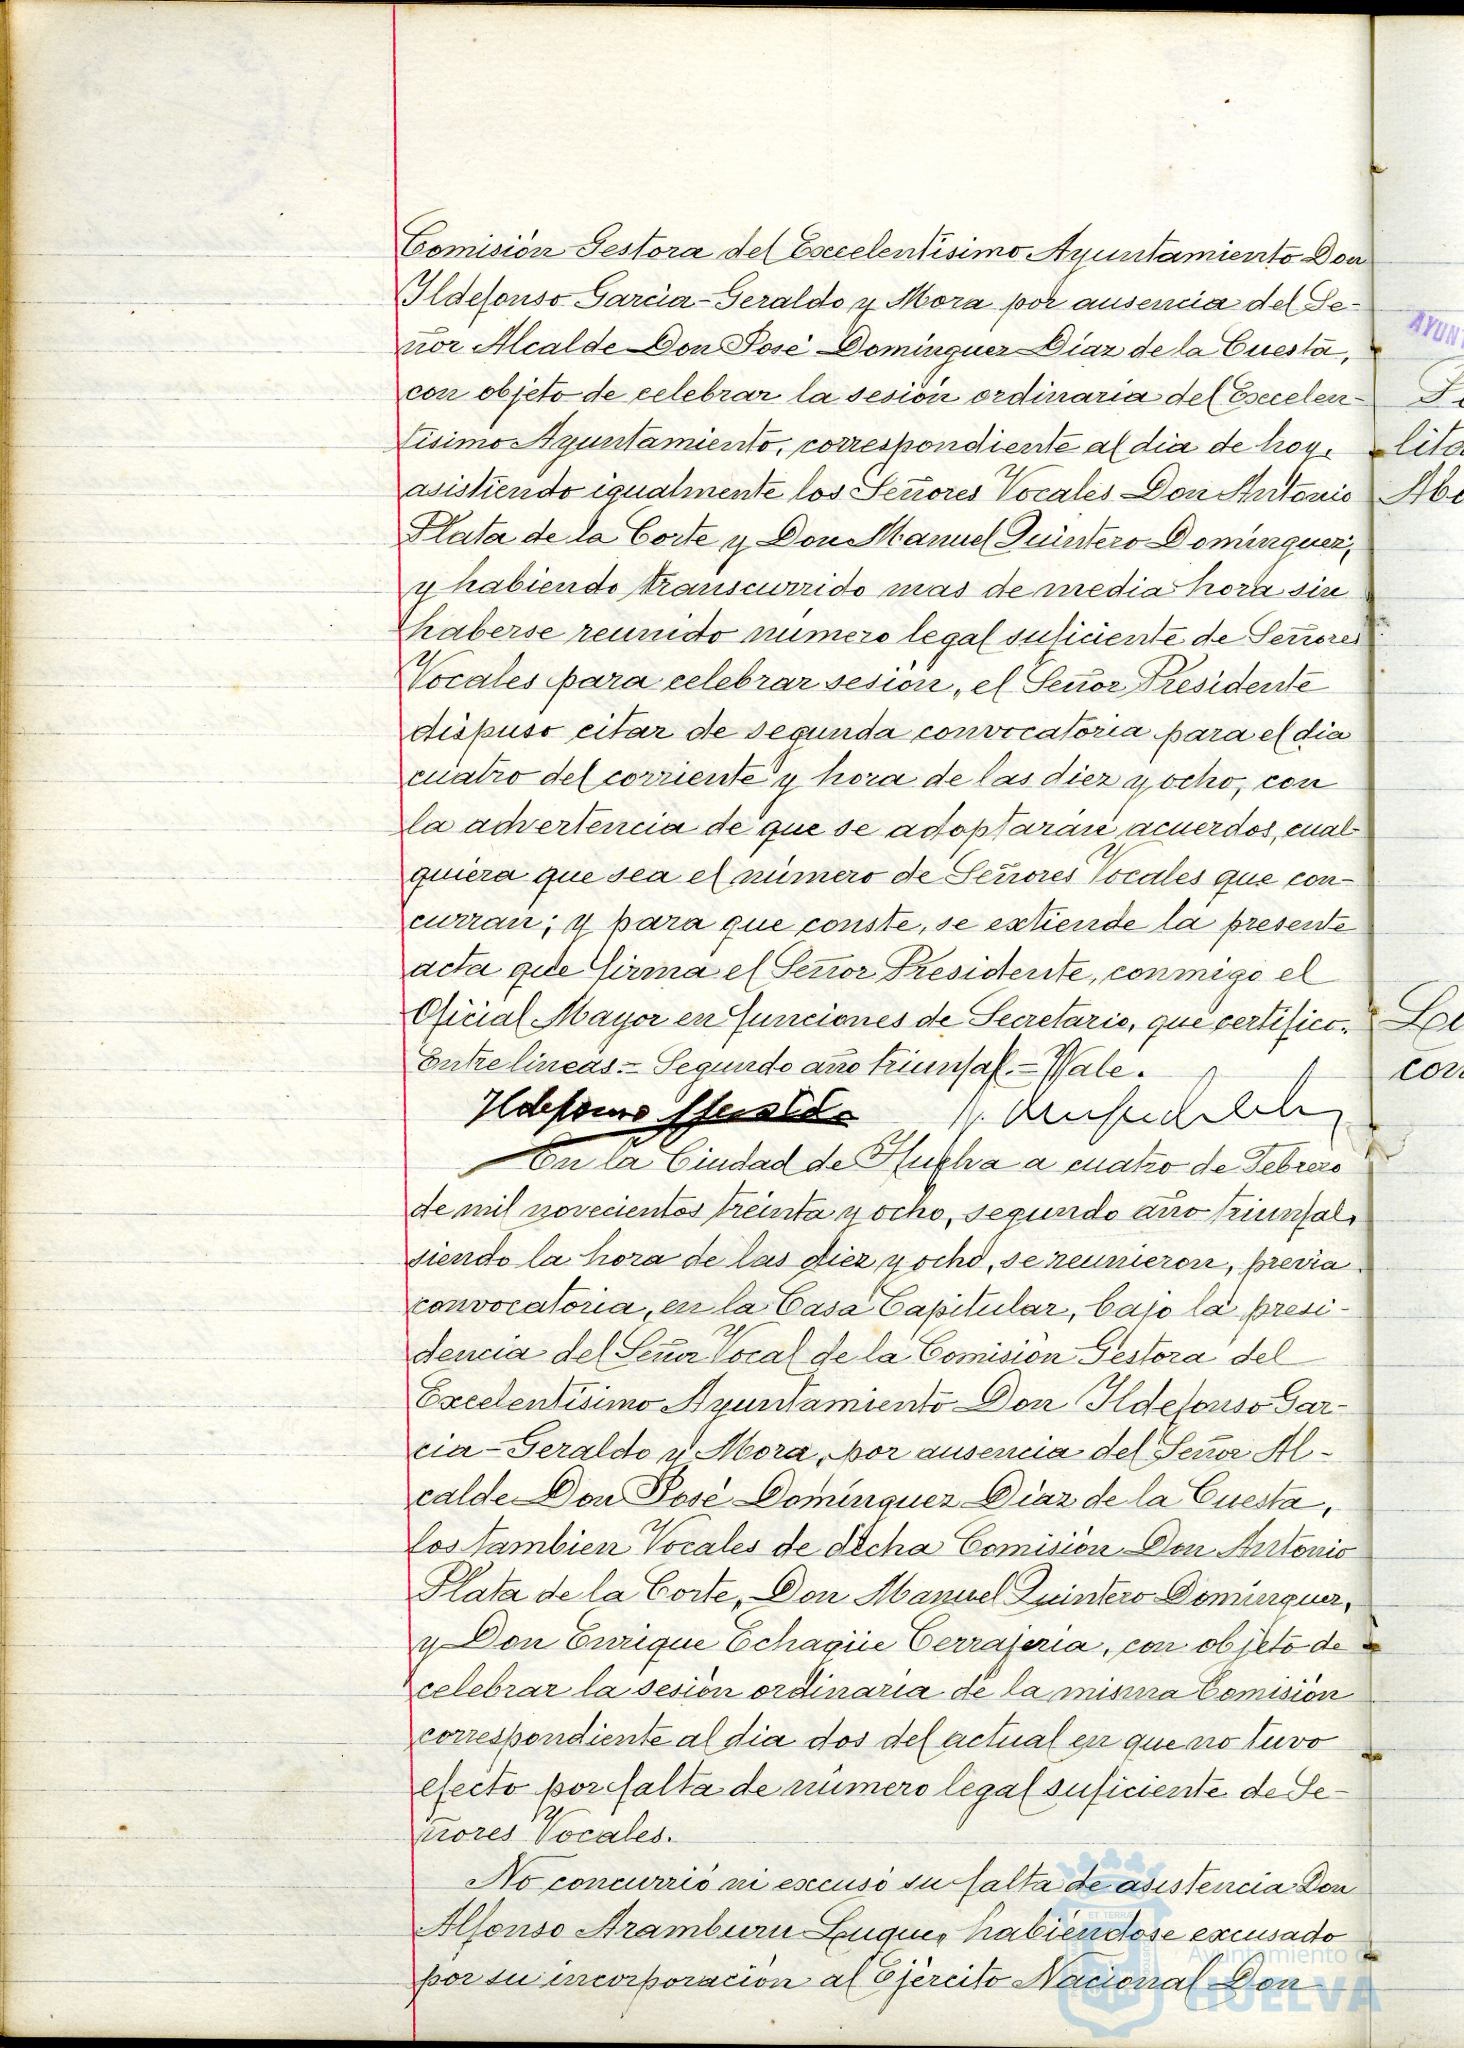 Comisión Gestora del Excelentísimo Ayuntamiento Don
Ildefonso Garcia-Geraldo y Mora por ausencia del Se-
ñor Alcalde Don José Domínguez Díaz de la Cuesta,
con objeto de celebrar la sesión ordinaria del Excelen-
tísimo Ayuntamiento, correspondiente al dia de hoy,
asistiendo igualmente los Señores Vocales Don Antonio
Plata de la Corte y Don Manuel Quintero Domínguez,
y habiendo transcurrido mas de media hora sin
haberse reunido número legal suficiente de Señores
Vocales para celebrar sesión, el Señor Presidente
dispuso citar de segunda convocatoria para el dia
cuatro del corriente y hora de las diez y ocho, con
la advertencia de que se adoptarán acuerdos, cual-
quiera que sea el número de Señores Vocales que con-
curran; y para que conste, se extiende la presente
acta que firma el Señor Presidente, conmigo el
Oficial Mayor en funciones de Secretario, que certifico.
Entre lineas.= Segundo año triunfal.= Vale.
Ildefonso Geraldo
En la Ciudad de Huelva a cuatro de Febrero
de mil novecientos treinta y ocho, segundo año triunfal,
siendo la hora de las diez y ocho, se reunieron, previa
convocatoria, en la Casa Capitular, bajo la presi-
dencia del Señor Vocal de la Comisión Gestora del
Excelentísimo Ayuntamiento Don Ildefonso Gar-
cia-Geraldo y Mora, por ausencia del Señor Al-
calde Don José Domínguez Díaz de la Cuesta,
los tambien Vocales de dicha Comisión Don Antonio
Plata de la Corte, Don Manuel Quintero Domínguez,
y Don Enrique Echagüe Cerrajeria, con objeto de
celebrar la sesión ordinaria de la misma Comisión
correspondiente al dia dos del actual en que no tuvo
efecto por falta de número legal suficiente de Se-
ñores Vocales.
No concurrió ni excusó su falta de asistencia Don
Alfonso Aramburu Luque, habiéndose excusado
por su incorporación al Ejército Nacional Don
Ayuntamiento de
HUELVA